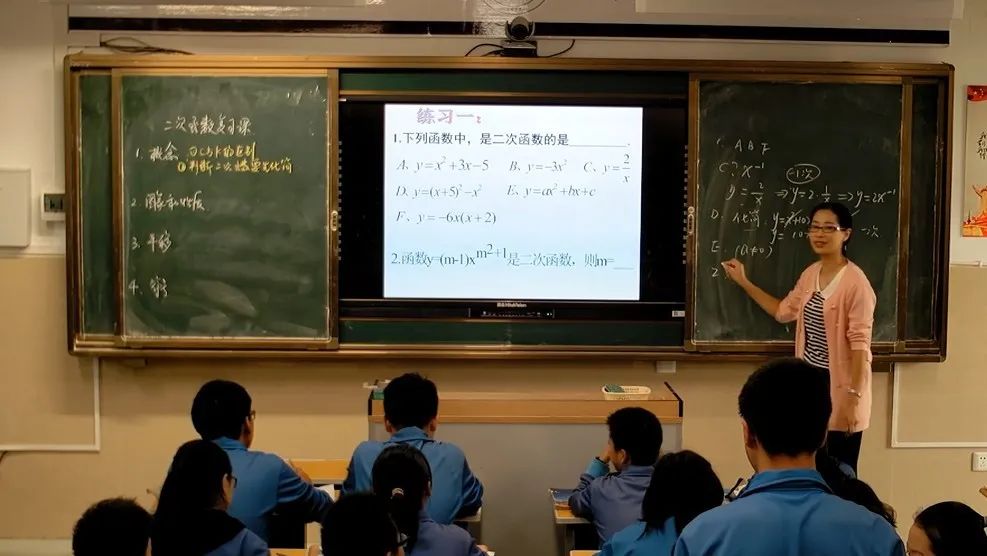 二次函数复习课
1. 概念
2. 图象和性质
3. 平移
4.
练习一:
1.下列函数中，是二次函数的是________.
A、y=x²+3x-5 B、y=-3x² C、y=2/x
D、y=(x+5)²-x² E、y=ax²+bx+c
F、y=-6x(x+2)
2.函数y=(m-1)x^m²+1是二次函数，则m=___
1. A B F
C? x⁻¹ -1次
y=2/x ⇒ y=2·1/x ⇒ y=2x⁻¹
D. 化简 一次
E. (a≠0)
2